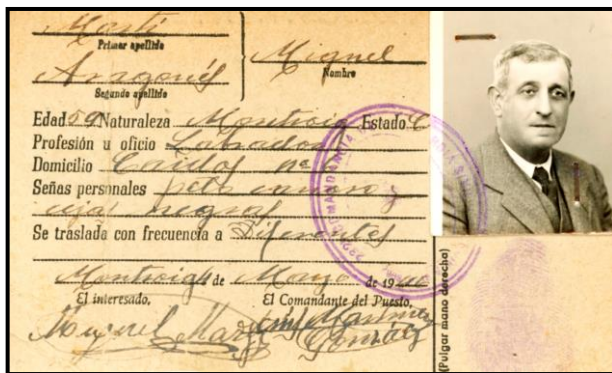 Martí
Primer apellido
Miguel
Nombre
Aragonés
Segundo apellido
Edad 59 Naturaleza Montroig Estado C
Profesión u oficio Labrador
Domicilio
Señas personales pelo canoso y
cejas negras
Se traslada con frecuencia a Diferentes
Montroig de Mayo de 19
El interesado, El Comandante del Puesto,
Miguel Martí
Martínez
González
(Pulgar mano derecha)
COMANDANCIA